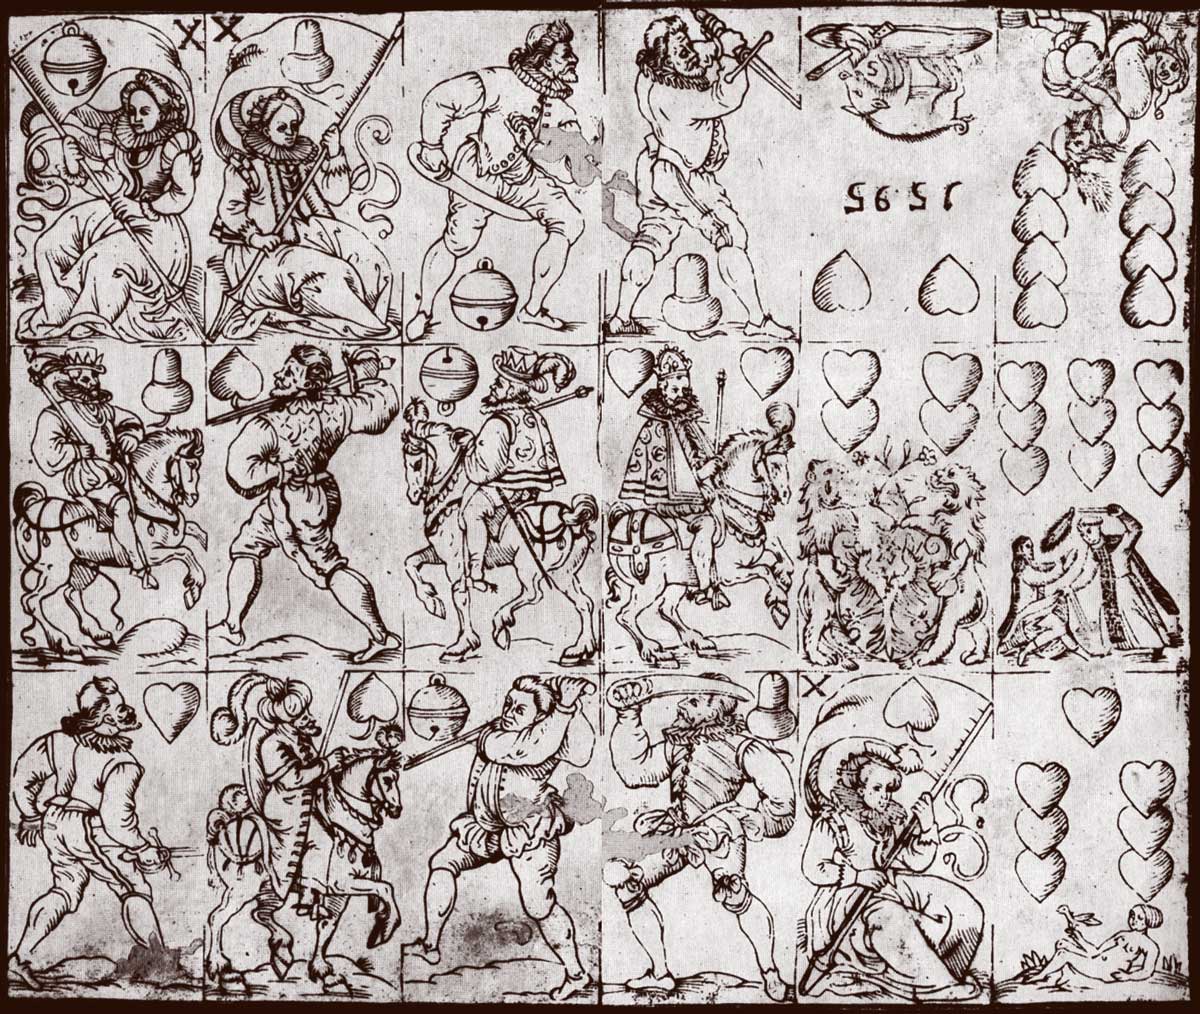 X X
15·95
X